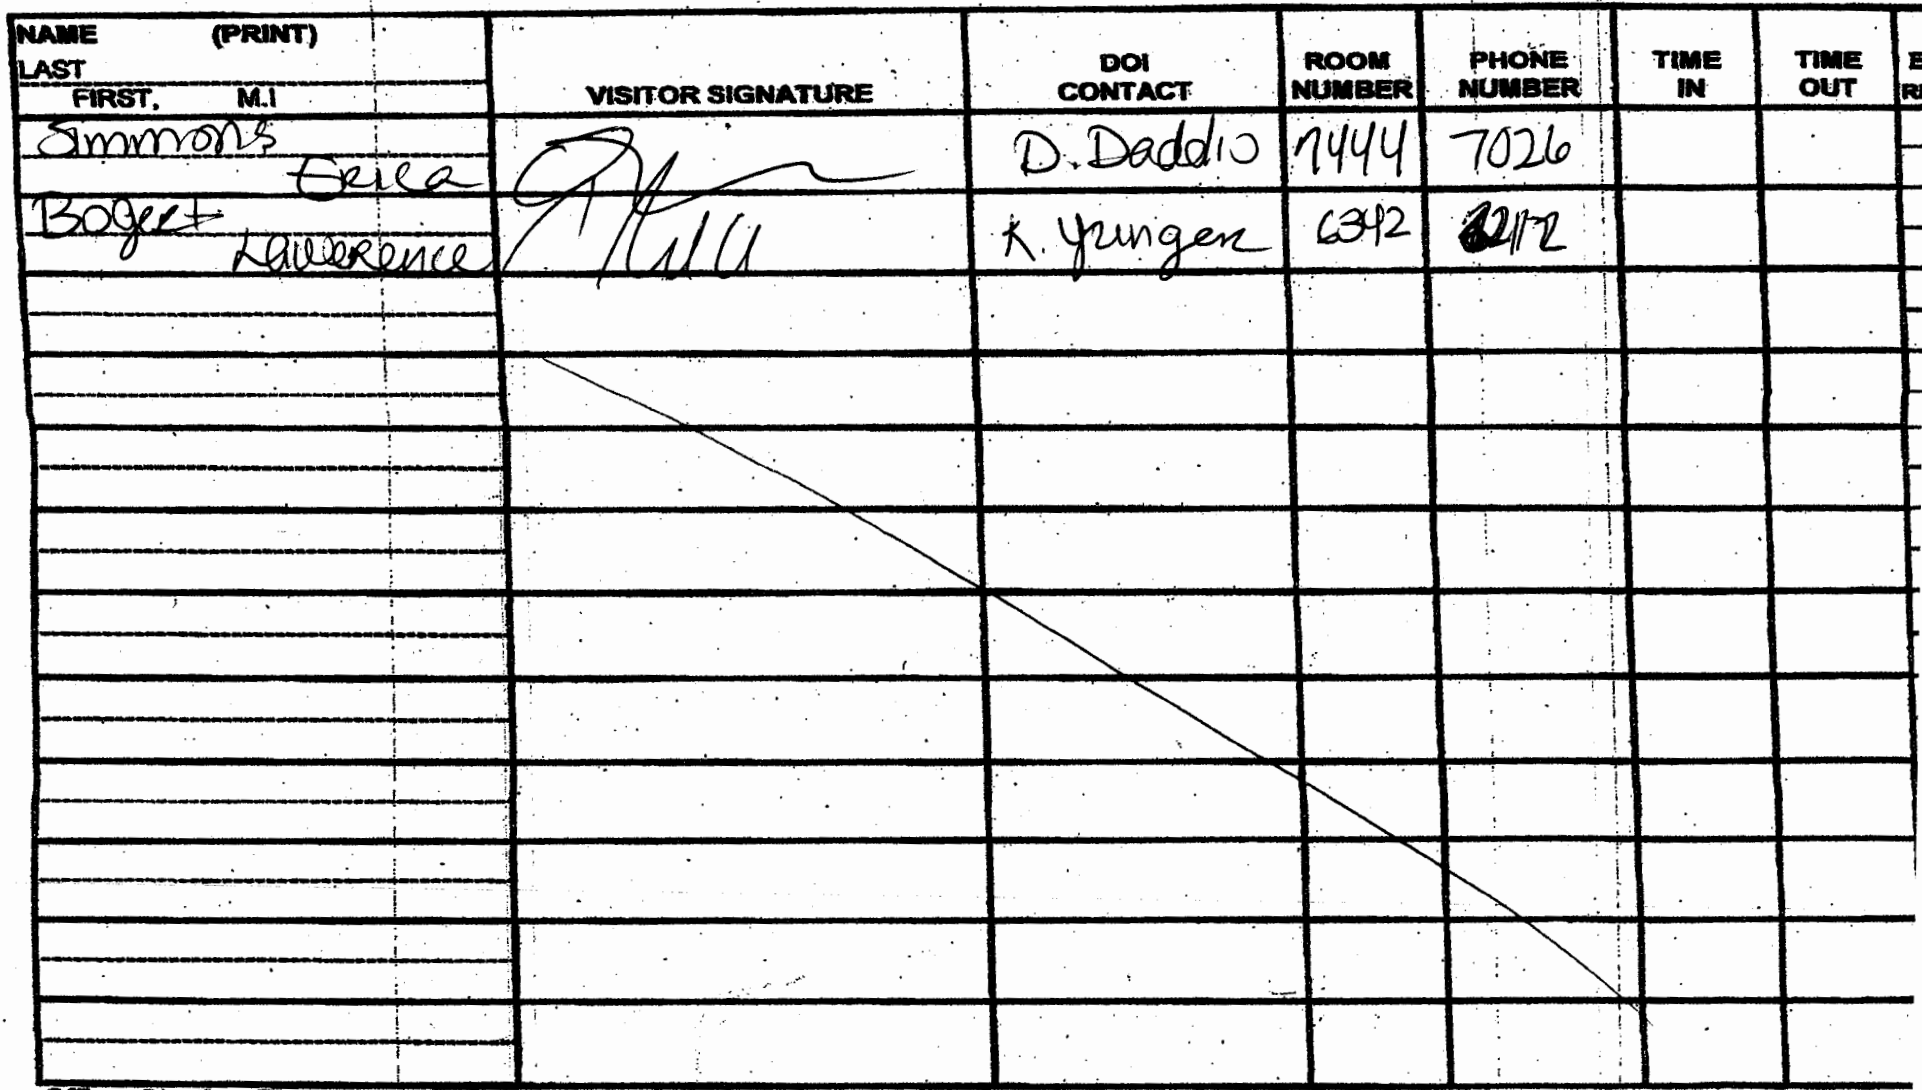 NAME (PRINT)
LAST
FIRST, M.I
VISITOR SIGNATURE
DOI
CONTACT
ROOM
NUMBER
PHONE
NUMBER
TIME
IN
TIME
OUT
Simmons
Erica
D. Daddio 7444 7026
Bogert
Lawerence
K. Yunger 6342